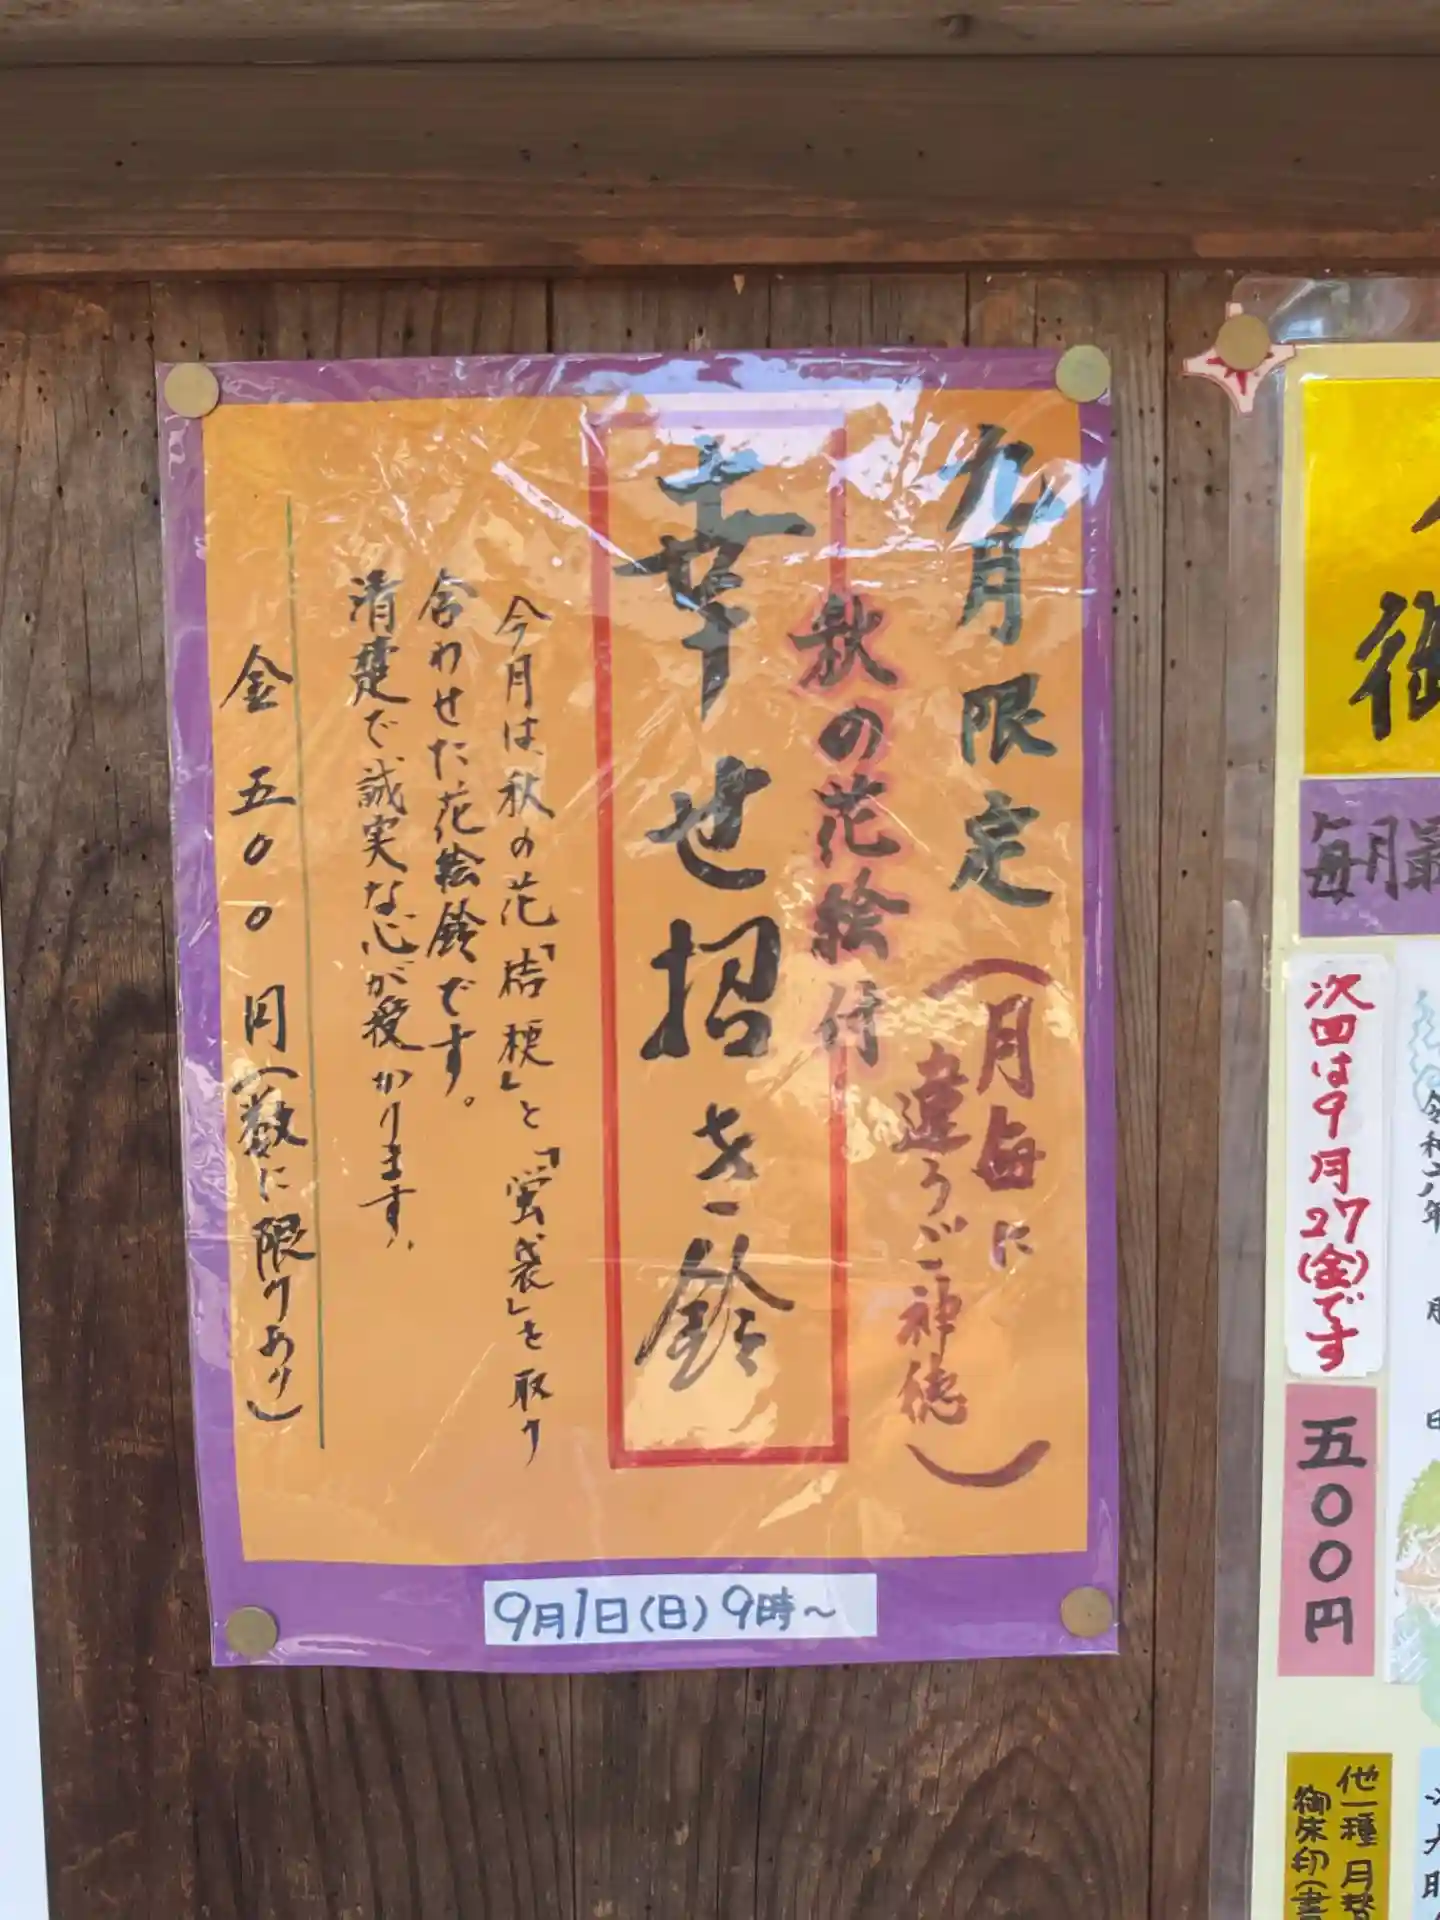 九月限定
(月毎に
違うご神徳)
秋の花絵付
幸せ招き鈴
今月は、秋の花「桔梗」と「蛍袋」を取り
合わせた花絵鈴です。
清楚で誠実な心が授かります。
金五〇〇円(数に限りあり)
9月1日(日)9時~
御
毎月最
次回は9月27(金)です
五〇〇円
令和六年 月 日
他一種 月替
御朱印(書